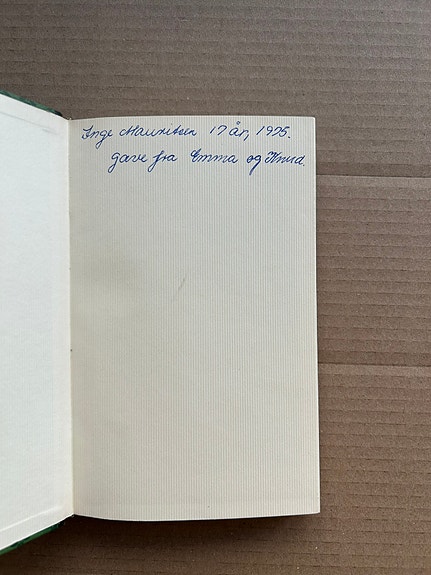 Inge Mauritsen 17 år, 1975.
gave fra Emma og Knud.